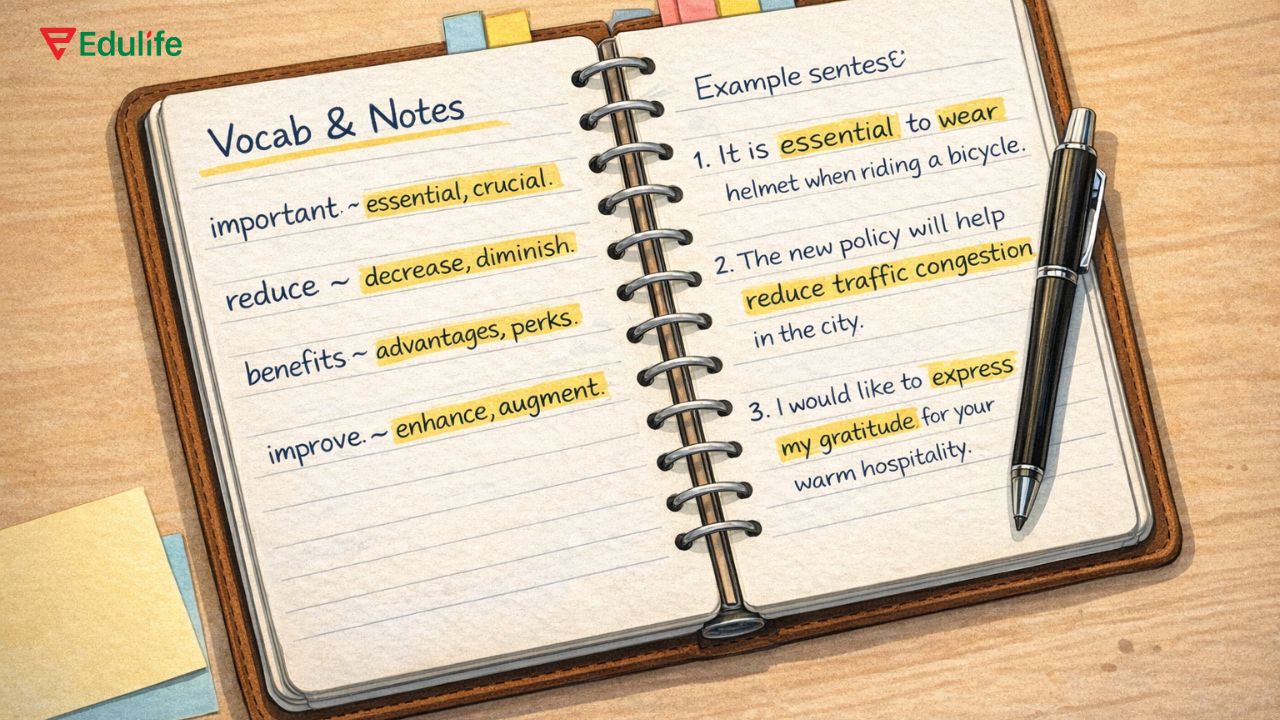 Edulife
Vocab & Notes
important. ~ essential, crucial.
reduce ~ decrease, diminish.
benefits ~ advantages, perks.
improve. ~ enhance, augment.
Example
1. It is essential to wear
helmet when riding a bicycle.
2. The new policy will help
reduce traffic congestion
in the city.
3. I would like to express
my gratitude for your
warm hospitality.